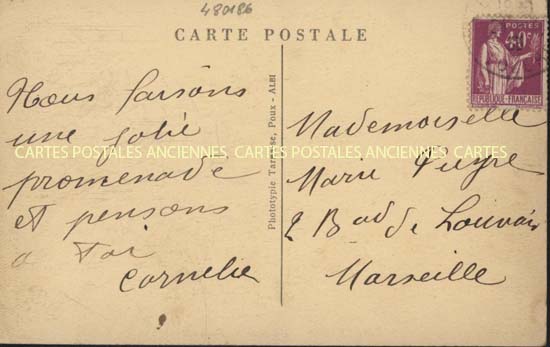 480186
CARTE POSTALE
POSTES
40c
REPUBLIQUE-FRANÇAISE
Nous faisons
une jolie
promenade
et pensons
a Toi
Cornelie
Phototypie Tarnaise, Poux - ALBI
Mademoiselle
Marie Peyre
2 Bd de Louvain
Marseille
CARTES POSTALES ANCIENNES CARTES POSTALES ANCIENNES CARTES